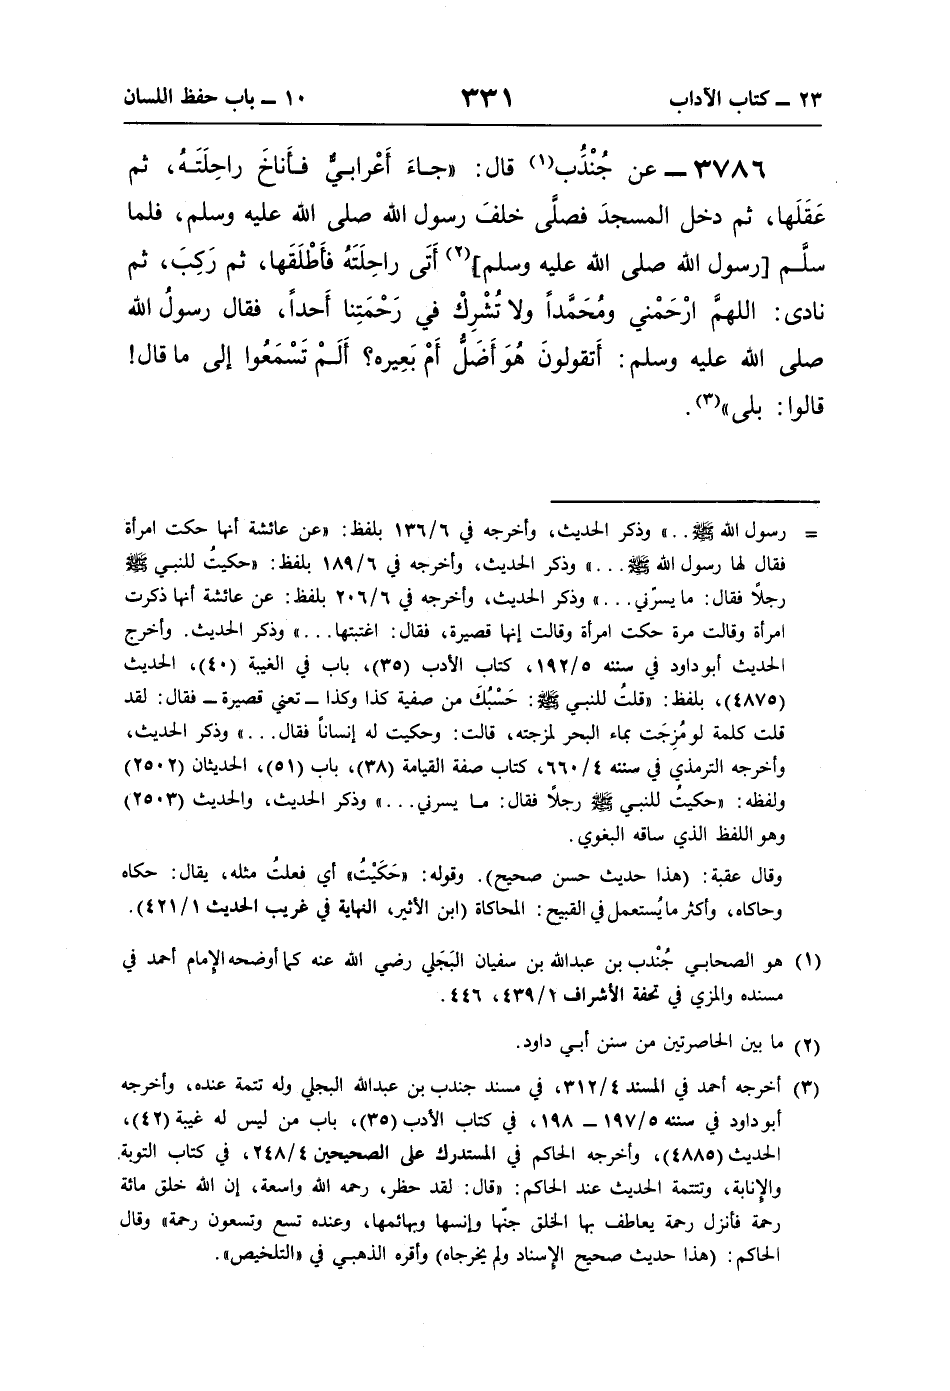 ٢٣ ـ كتاب الآداب ٣٣١ ١٠ ـ باب حفظ اللسان
٣٧٨٦ ـ عن جُنْدُب(١) قال: «جـاءَ أَعْرابيٌّ فـأَناخَ راحِلَتَـهُ، ثم
عَقَلَها، ثم دخل المسجدَ فصلَّى خلفَ رسول الله صلى الله عليه وسلم، فلما
سلَّـم [رسول الله صلى الله عليه وسلم](٢) أَتَى راحِلَتَهُ فأَطْلَقَها، ثم رَكِبَ، ثم
نادى: اللهمَّ ارْحَمْني ومُحَمَّداً ولا تُشْرِكْ في رَحْمَتِنا أَحداً، فقال رسولُ الله
صلى الله عليه وسلم: أَتقولونَ هُوَ أَضَلُّ أَمْ بَعِيره؟ أَلَـمْ تَسْمَعُوا إلى ما قال!
قالوا: بلى»(٣).
= رسول الله ﷺ..» وذكر الحديث، وأخرجه في ١٣٦/٦ بلفظ: «عن عائشة أنها حكت امرأة
فقال لها رسول الله ﷺ...» وذكر الحديث، وأخرجه في ١٨٩/٦ بلفظ: «حكيتُ للنبـي ﷺ
رجلاً فقال: ما يسرّني...» وذكر الحديث، وأخرجه في ٢٠٦/٦ بلفظ: عن عائشة أنها ذكرت
امرأة وقالت مرة حكت امرأة وقالت إنها قصيرة، فقال: اغتبتها...» وذكر الحديث. وأخرج
الحديث أبو داود في سننه ١٩٢/٥، كتاب الأدب (٣٥)، باب في الغيبة (٤٠)، الحديث
(٤٨٧٥)، بلفظ: «قلتُ للنبـي ﷺ: حَسْبُكَ من صفية كذا وكذا ـ تعني قصيرة ـ فقال: لقد
قلت كلمة لو مُزِجَت بماء البحر لمزجته، قالت: وحكيت له إنساناً فقال...» وذكر الحديث،
وأخرجه الترمذي في سننه ٦٦٠/٤، كتاب صفة القيامة (٣٨)، باب (٥١)، الحديثان (٢٥٠٢)
ولفظه: «حكيتُ للنبـي ﷺ رجلاً فقال: مـا يسرني...» وذكر الحديث، والحديث (٢٥٠٣)
وهو اللفظ الذي ساقه البغوي.
وقال عقبة: (هذا حديث حسن صحيح). وقوله: «حَكَيْتُ» أي فعلتُ مثله، يقال: حكاه
وحاكاه، وأكثر ما يُستعمل في القبيح: المحاكاة (ابن الأثير، النهاية في غريب الحديث ٤٢١/١).
(١) هو الصحابـي جُنْدب بن عبدالله بن سفيان البَجَلي رضي الله عنه كما أوضحه الإمام أحمد في
مسنده والمزي في تحفة الأشراف ٤٣٩/٢، ٤٤٦.
(٢) ما بين الحاصرتين من سنن أبـي داود.
(٣) أخرجه أحمد في المسند ٣١٢/٤، في مسند جندب بن عبدالله البجلي وله تتمة عنده، وأخرجه
أبو داود في سننه ١٩٧/٥ ـ ١٩٨، في كتاب الأدب (٣٥)، باب من ليس له غيبة (٤٢)،
الحديث (٤٨٨٥)، وأخرجه الحاكم في المستدرك على الصحيحين ٢٤٨/٤، في كتاب التوبة
والإنابة، وتتمة الحديث عند الحاكم: «قال: لقد حظر، رحمه الله واسعة، إن الله خلق مائة
رحمة فأنزل رحمة يعاطف بها الخلق جنّها وإنسها وبهائمها، وعنده تسع وتسعون رحمة» وقال
الحاكم: (هذا حديث صحيح الإسناد ولم يخرجاه) وأقره الذهبـي في «التلخيص».